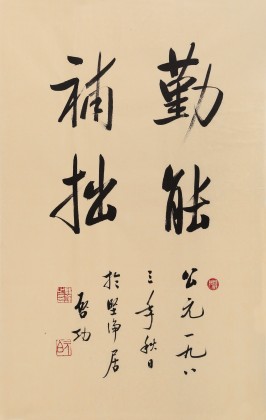 勤能
補拙
公元一九八
三年秋日
於堅淨居
啓功